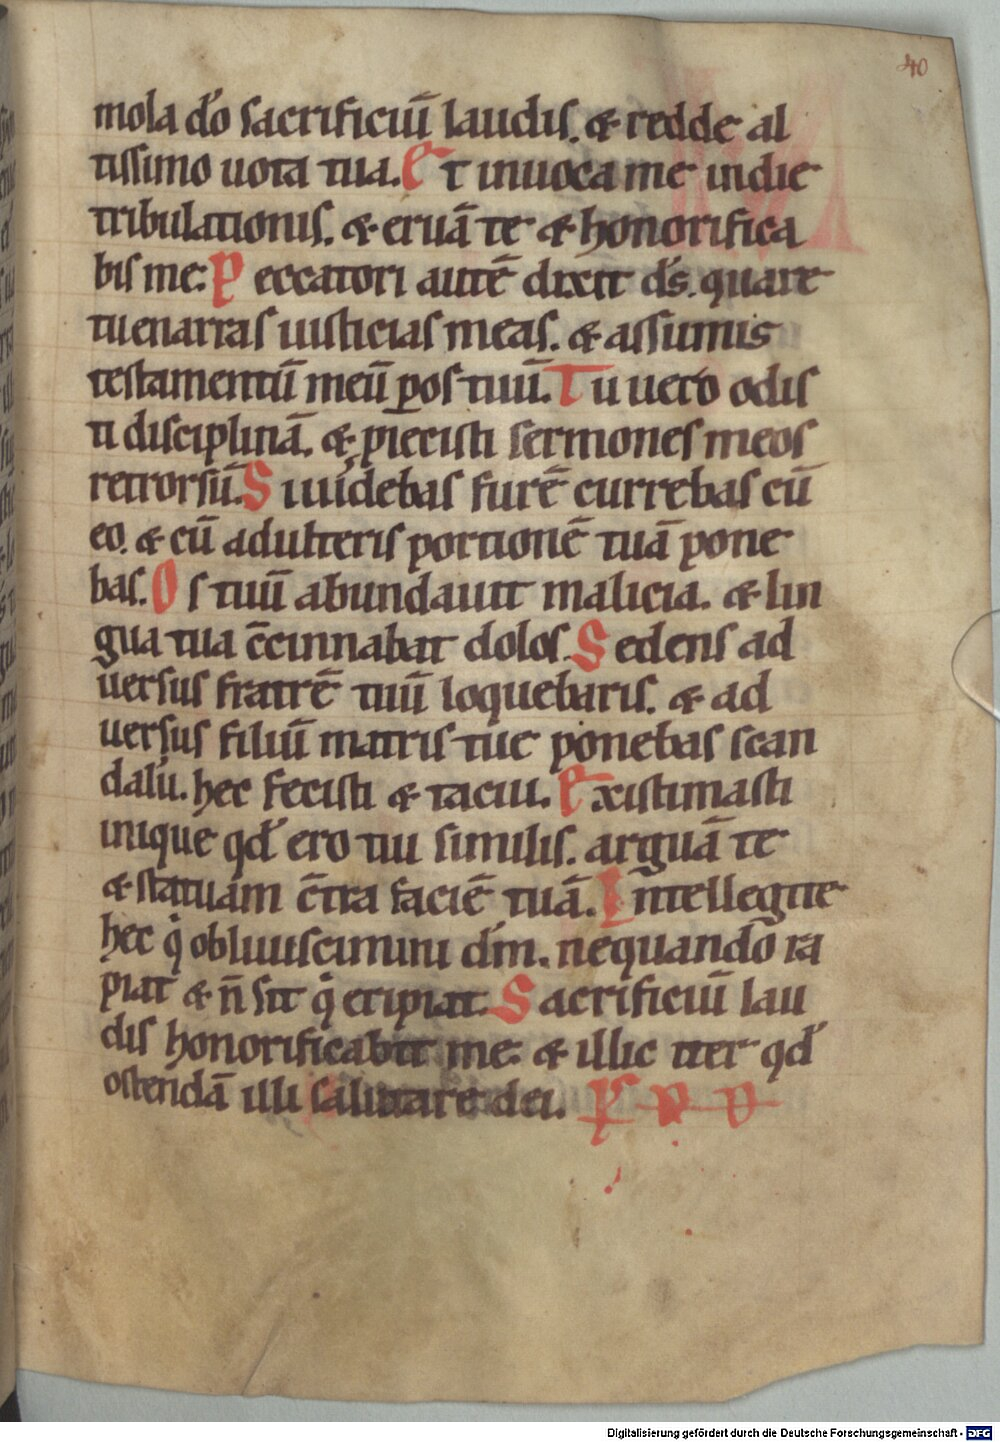 40
mola dō sacrificiū laudis. & redde al
tissimo uota tua. Et inuoca me in die
tribulationis. & eruā te & honorifica
bis me: Peccatori autē dixit d̄s. quare
tu enarras iusticias meas. & assumis
testamentū meū p os tuū. Tu uero odis
ti disciplinā. & piecisti sermones meos
retrorsū. Si uidebas furē currebas cū
eo. & cū adulteris portionē tuā pone
bas. Os tuū abundauit malicia. & lin
gua tua c̄cinnabat dolos. Sedens ad
uersus fratrē tuū loquebaris. & ad
uersus filiū matris tue ponebas scan
dalū. hec fecisti & tacui. Existimasti
inique qd̄ ero tui similis. arguā te
& statuam c̄tra faciē tuā. Intellegite
hec q̇ obliuiscimini dm̄. nequando ra
piat & n̄ sit q̇ eripiat. Sacrificiū lau
dis honorificabit me: & illic iter qd̄
ostendā illi salutare dei.
Digitalisierung gefördert durch die Deutsche Forschungsgemeinschaft - DFG